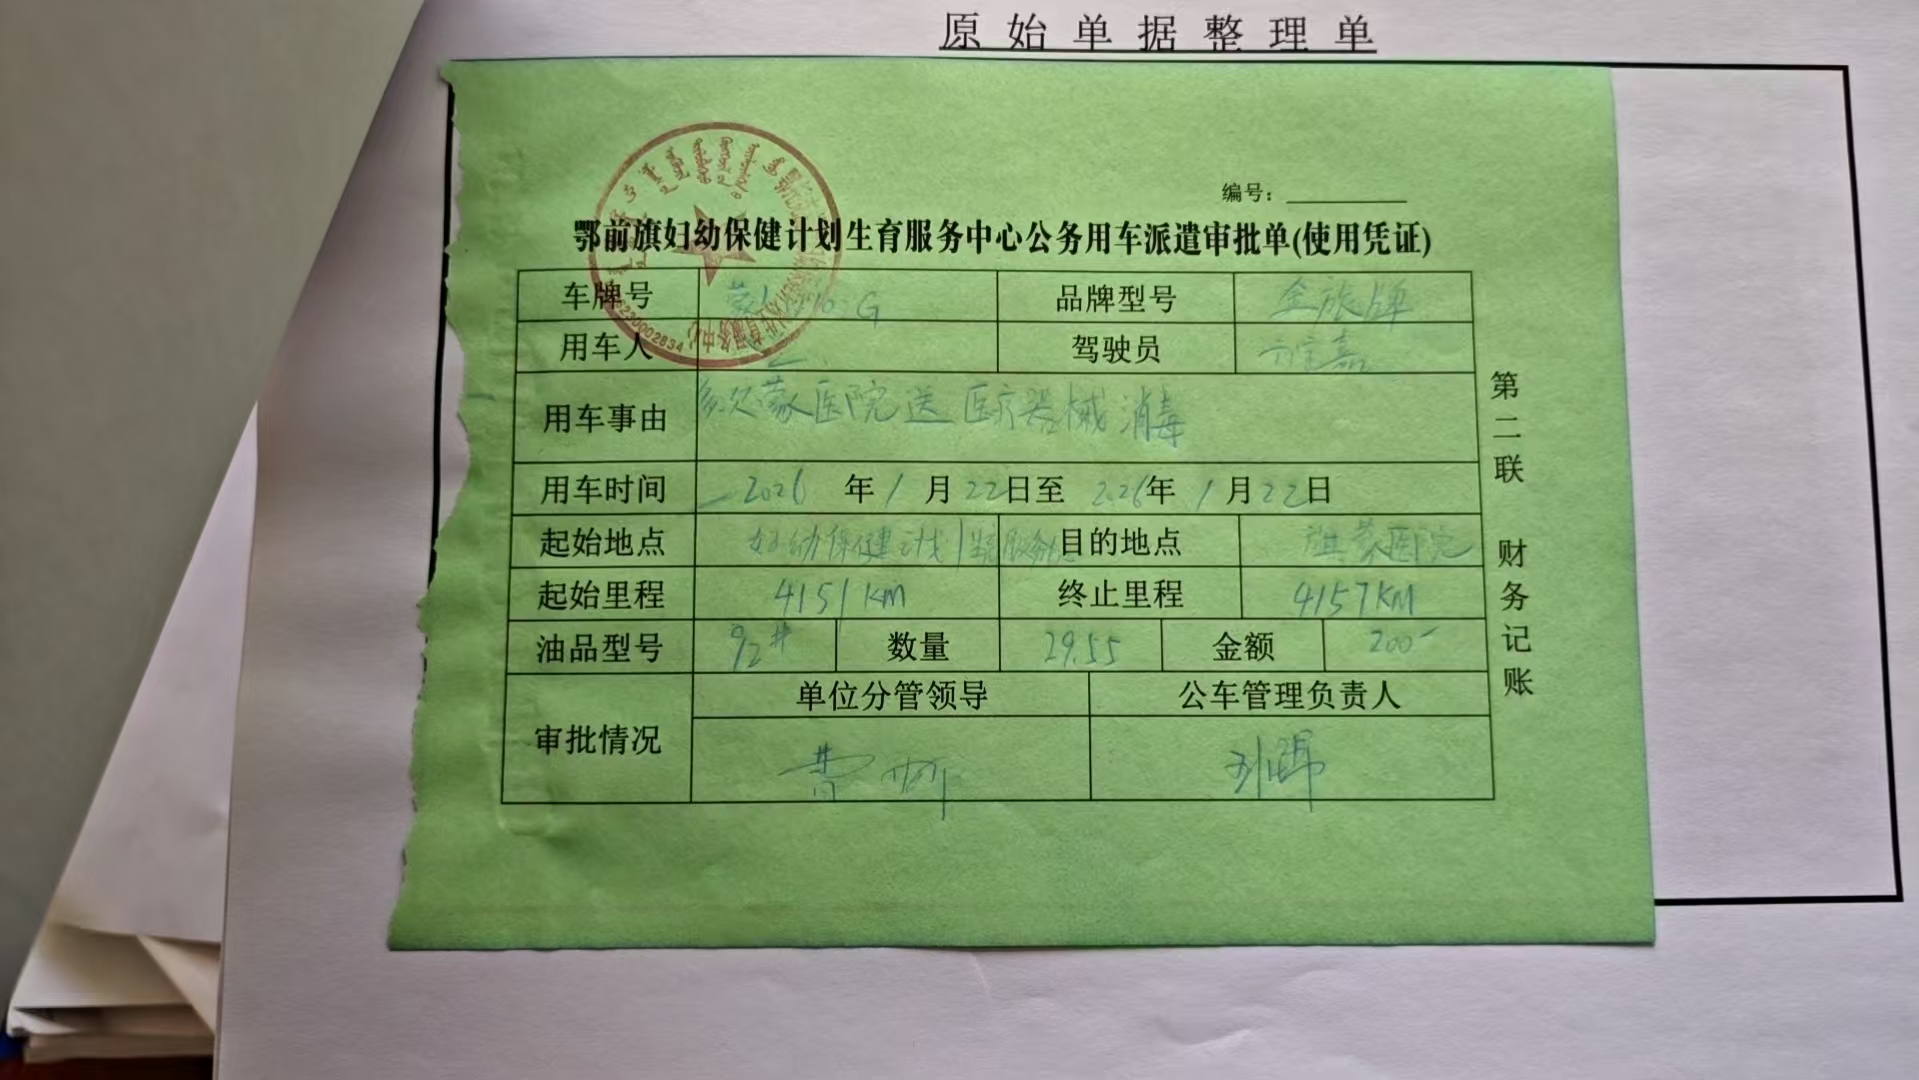 原始单据整理单
编号：
鄂前旗妇幼保健计划生育服务中心公务用车派遣审批单(使用凭证)
车牌号 品牌型号
用车人 驾驶员
用车事由 蒙医院送医疗器械消毒
用车时间 2026 年 1 月 22日至 2026年 1 月 22日
起始地点 妇幼保健计划生育服务中心 目的地点 旗蒙医院
起始里程 4151KM 终止里程 4157KM
油品型号 92# 数量 29.55 金额 200
审批情况 单位分管领导 公车管理负责人
第二联 财务记账